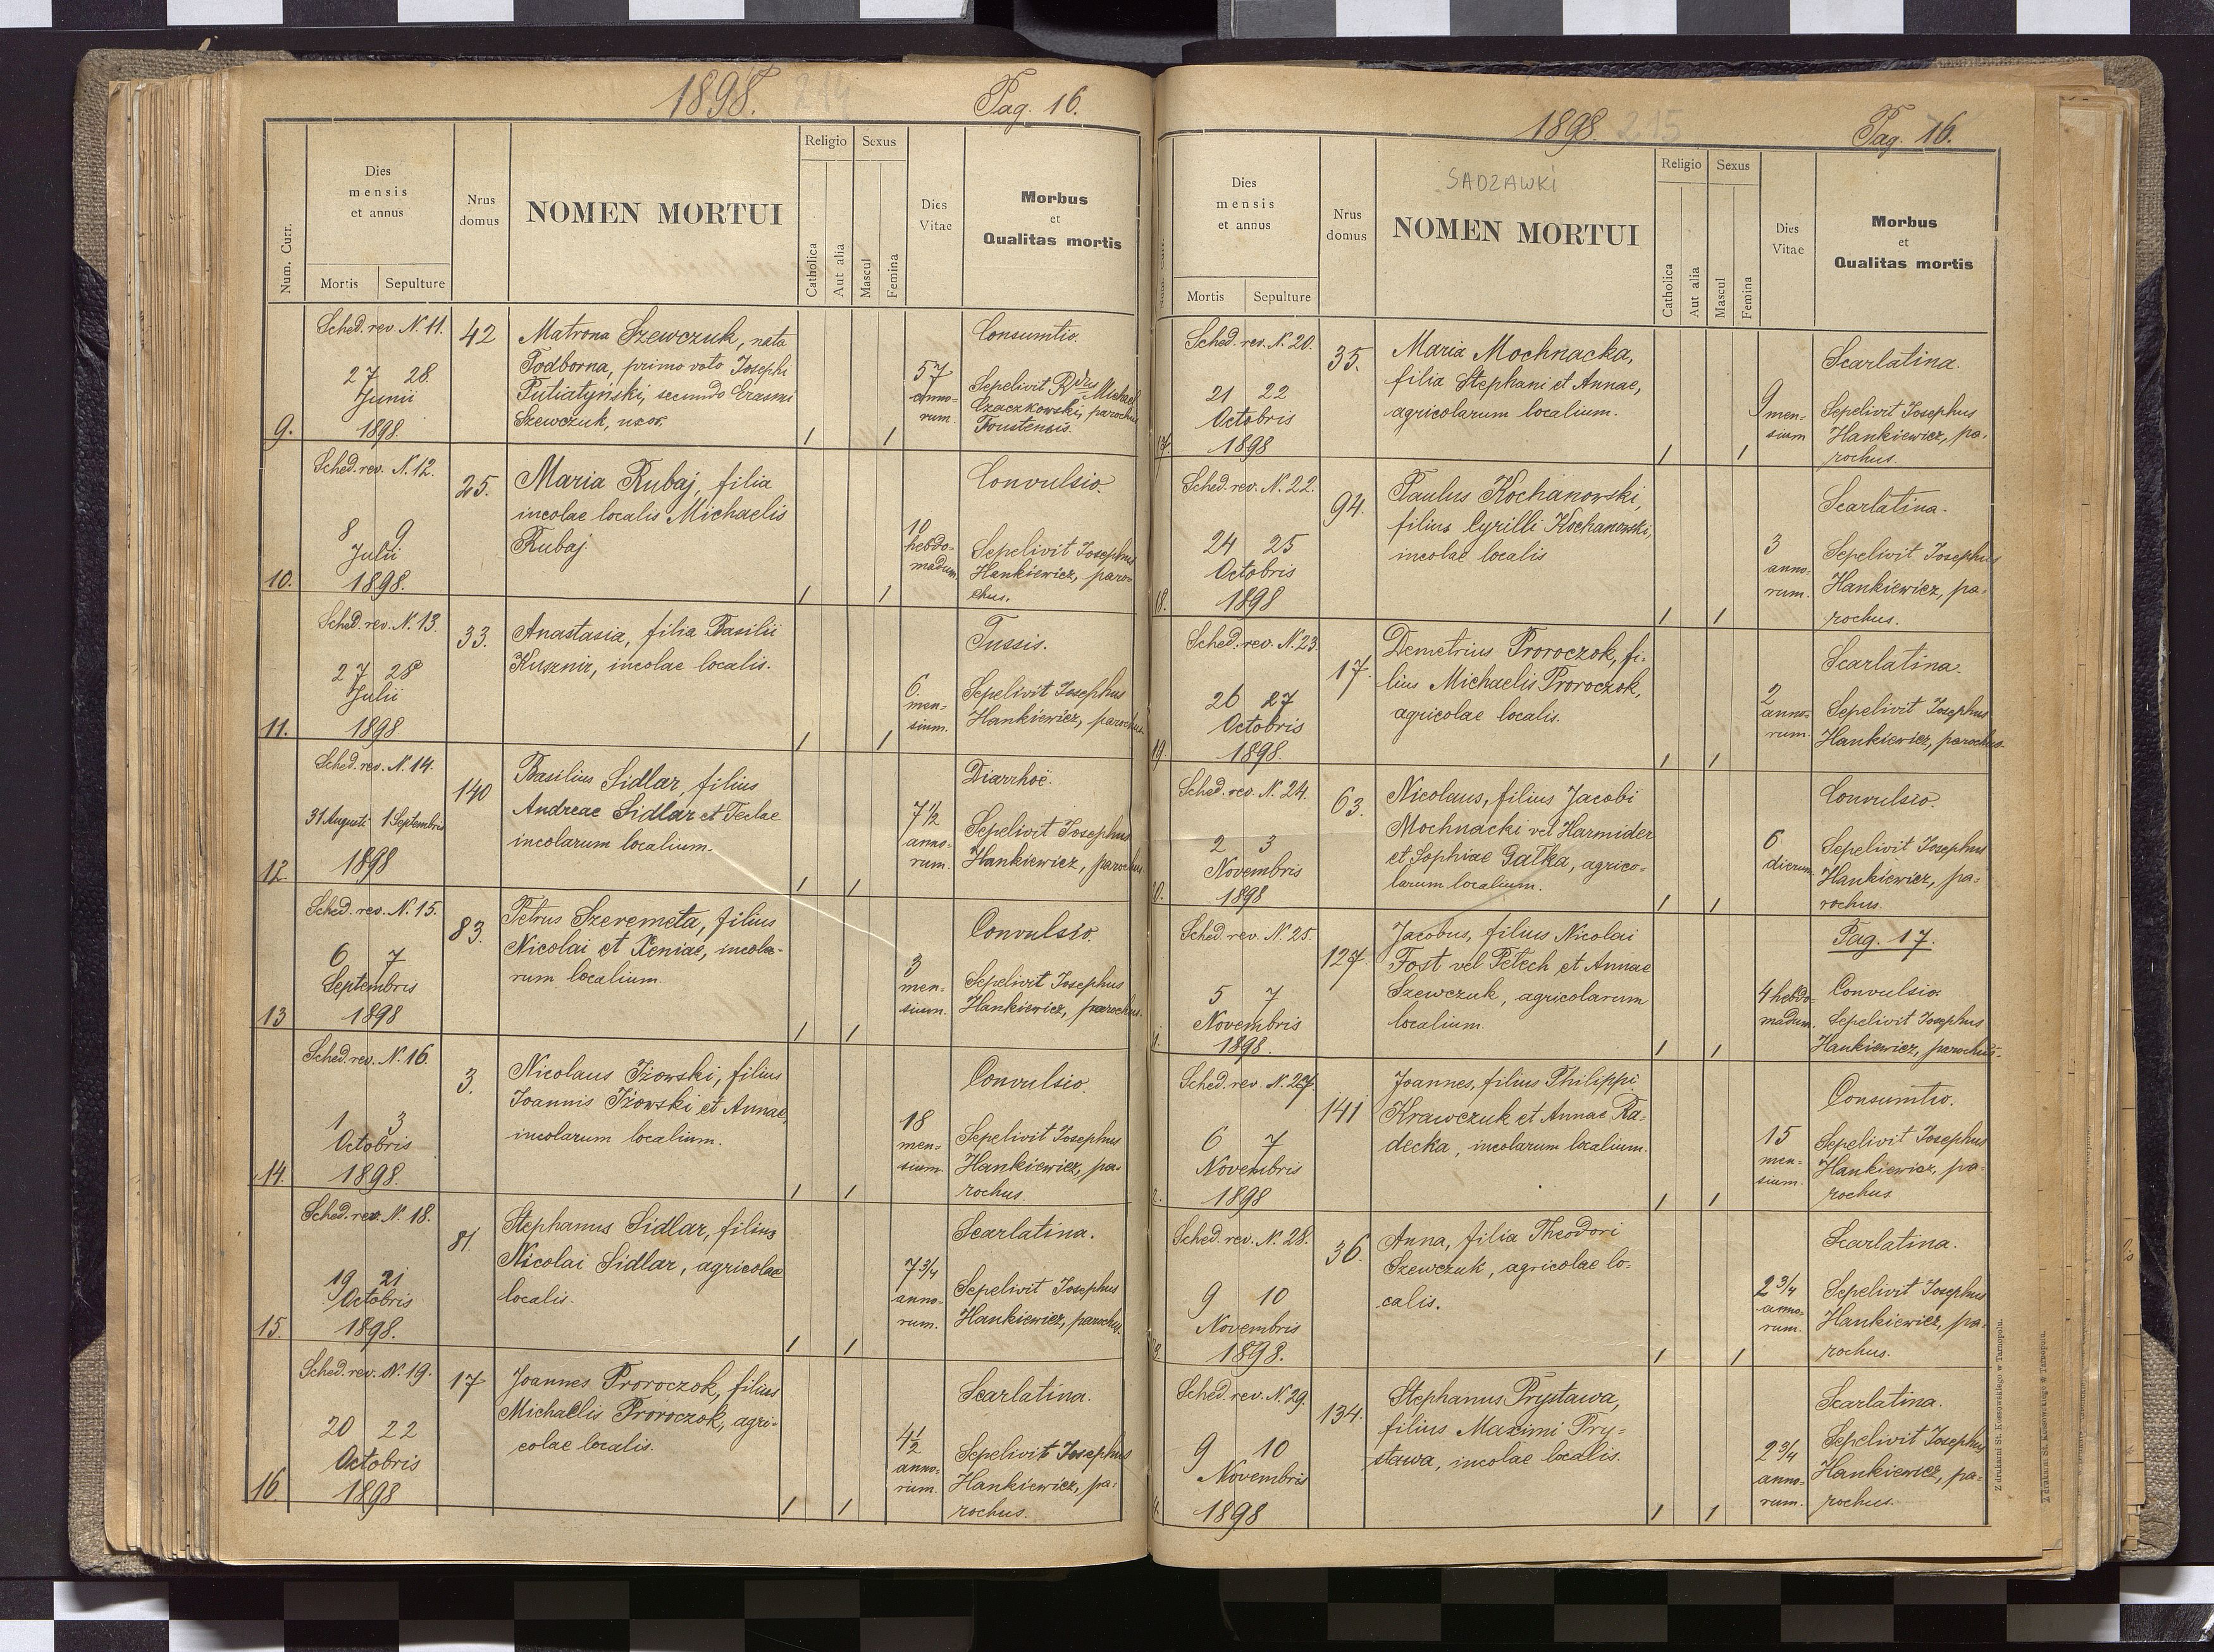 1898. 214 Pag. 16.
Num. Curr.
Dies
mensis
et annus
Mortis Sepulture
Nrus
domus
NOMEN MORTUI
Religio
Catholica
Aut alia
Sexus
Mascul
Femina
Dies
Vitae
Morbus
et
Qualitas mortis
9.
Sched. rev. N. 11.
27 28.
Junii
1898.
42
Matrona Szewczuk, nata
Podborna, primo voto Josephi
Putiatyński, secundo Erasmi
Szewczuk, uxor.
/ /
57
anno-
rum.
Consumtio.
Sepelivit Rdus Michael
Czaczkowski, parochus
Toustensis.
10.
Sched. rev. N. 12.
8 9
Julii
1898.
25.
Maria Rubaj, filia
incolae localis Michaelis
Rubaj.
/ /
10
hebdo-
madum.
Convulsio.
Sepelivit Josephus
Hankiewicz, paro-
chus.
11.
Sched. rev. N. 13.
27 28
Julii
1898.
33.
Anastasia, filia Basilii
Kusznir, incolae localis.
/ /
6.
men-
sium.
Tussis.
Sepelivit Josephus
Hankiewicz, parochus.
12.
Sched. rev. N. 14.
31 Augusti 1 Septembris
1898
140
Basilius Sidlar, filius
Andreae Sidlar et Teclae
incolarum localium.
/ /
7 1/2
anno-
rum.
Diarrhoë.
Sepelivit Josephus
Hankiewicz, parochus.
13
Sched. rev. N. 15.
6 7
Septembris
1898
83.
Petrus Szeremeta, filius
Nicolai et Xeniae, incola-
rum localium.
/ /
3
men-
sium.
Convulsio.
Sepelivit Josephus
Hankiewicz, parochus.
14.
Sched. rev. N. 16.
1 3
Octobris
1898.
3.
Nicolaus Iżowski, filius
Joannis Iżowski et Annae,
incolarum localium.
/ /
18
men-
sium.
Convulsio.
Sepelivit Josephus
Hankiewicz, pa-
rochus.
15.
Sched. rev. N. 18.
19 21
Octobris
1898.
81.
Stephanus Sidlar, filius
Nicolai Sidlar, agricolae
localis.
/ /
7 3/4
anno-
rum.
Scarlatina.
Sepelivit Josephus
Hankiewicz, parochus.
16.
Sched. rev. N. 19.
20 22
Octobris
1898
17
Joannes Proroczok, filius
Michaelis Proroczok, agri-
colae localis.
/ /
4 1/2
anno-
rum.
Scarlatina.
Sepelivit Josephus
Hankiewicz, pa-
rochus.
1898. 215 Pag. 16.
SADZAWKI
Dies
mensis
et annus
Mortis Sepulture
Nrus
domus
NOMEN MORTUI
Religio
Catholica
Aut alia
Sexus
Mascul
Femina
Dies
Vitae
Morbus
et
Qualitas mortis
17.
Sched. rev. N. 20.
21 22
Octobris
1898
35.
Maria Mochnacka,
filia Stephani et Annae,
agricolarum localium.
/ /
9 men-
sium
Scarlatina.
Sepelivit Josephus
Hankiewicz, pa-
rochus.
18.
Sched. rev. N. 22.
24 25
Octobris
1898
94.
Paulus Kochanowski,
filius Cyrilli Kochanowski,
incolae localis
/ /
3
anno-
rum.
Scarlatina.
Sepelivit Josephus
Hankiewicz, pa-
rochus.
19.
Sched. rev. N. 23.
26 27
Octobris
1898.
17.
Demetrius Proroczok, fi-
lius Michaelis Proroczok,
agricolae localis.
/ /
2
anno-
rum.
Scarlatina.
Sepelivit Josephus
Hankiewicz, parochus.
0.
Sched. rev. N. 24.
2 3
Novembris
1898
63.
Nicolaus, filius Jacobi
Mochnacki vel Harmider
et Sophiae Gałka, agrico-
larum localium.
/ /
6
dierum.
Convulsio.
Sepelivit Josephus
Hankiewicz, pa-
rochus.
1.
Sched. rev. N. 25.
5 7
Novembris
1898.
127.
Jacobus, filius Nicolai
Fost vel Petech et Annae
Szewczuk, agricolarum
localium.
/ /
4 hebdo-
madum.
Pag. 17.
Convulsio.
Sepelivit Josephus
Hankiewicz, parochus.
2.
Sched. rev. N. 27.
6 7
Novembris
1898
141
Joannes, filius Philippi
Krawczuk et Annae Ra-
decka, incolarum localium.
/ /
15
men-
sium.
Consumtio.
Sepelivit Josephus
Hankiewicz, pa-
rochus.
3.
Sched. rev. N. 28.
9 10
Novembris
1898.
36.
Anna, filia Theodori
Szewczuk, agricolae lo-
calis.
/ /
2 3/4
anno-
rum.
Scarlatina.
Sepelivit Josephus
Hankiewicz, pa-
rochus.
4.
Sched. rev. N. 29.
9 10
Novembris
1898
134.
Stephanus Prystawa,
filius Maximi Pry-
stawa, incolae localis.
/ /
2 3/4
anno-
rum.
Scarlatina.
Sepelivit Josephus
Hankiewicz, pa-
rochus.
Z drukarni St. Kossowskiego w Tarnopolu.
Z drukarni St. Kossowskiego w Tarnopolu.